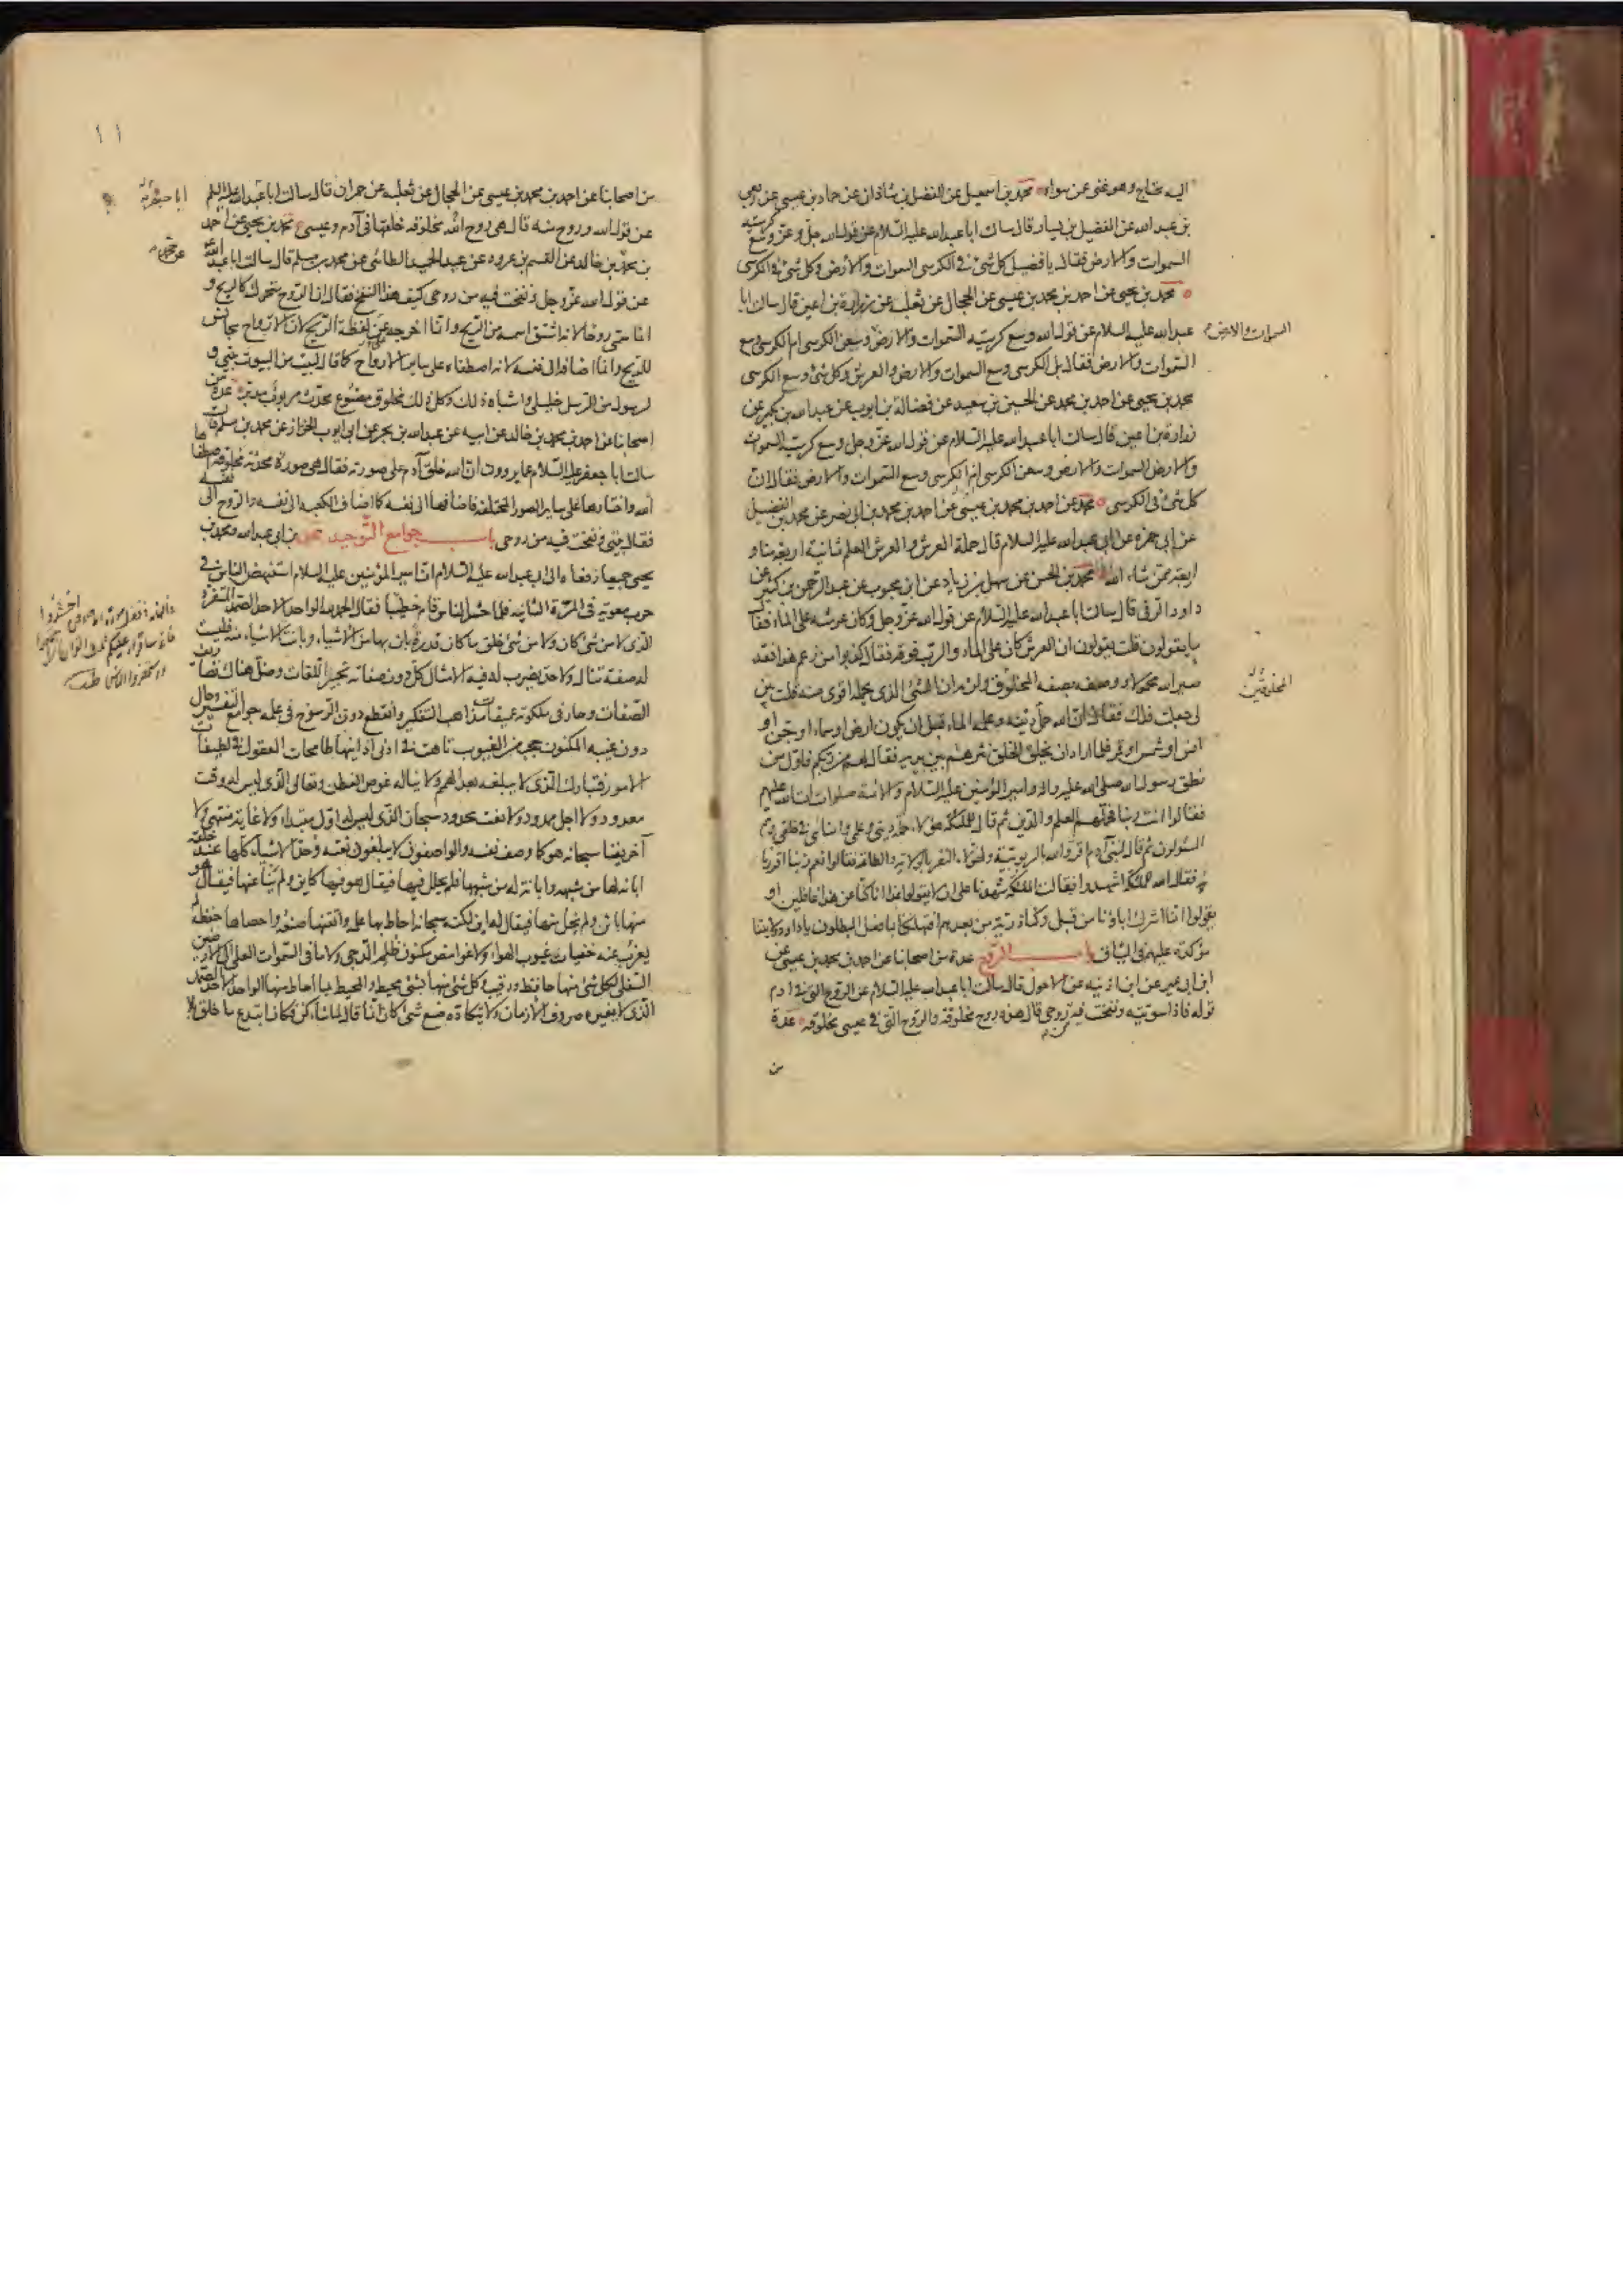 اليه محتاج وهو غنى عن سواه محمد بن اسمعيل عن الفضل بن شاذان عن حماد بن عيسى عن ربعى
بن عبد الله عن الفضيل بن يسار قال سالت ابا عبد الله عليه السلام عن قول الله جل وعز وسع كرسيه
السموات والارض فقال يا فضيل كل شئ فى الكرسى السموات والارض وكل شئ فى الكرسى
محمد بن يحيى عن احمد بن محمد بن عيسى عن الحجال عن ثعلبه عن زرارة بن اعين قال سالت ابا
عبد الله عليه السلام عن قول الله وسع كرسيه السموات والارض وسعن الكرسى ام الكرسى وسع
السموات والارض فقال بل الكرسى وسع السموات والارض والعرش وكل شئ وسع الكرسى
محمد بن يحيى عن احمد بن محمد عن الحسين بن سعيد عن فضالة بن ايوب عن عبد الله بن بكير عن
زرارة بن اعين قال سالت ابا عبد الله عليه السلام عن قول الله عز وجل وسع كرسيه السموات
والارض السموات والارض وسعن الكرسى ام الكرسى وسع السموات والارض فقال ان
كل شئ فى الكرسى محمد عن احمد بن محمد بن عيسى عن احمد بن محمد بن ابى نصر عن محمد بن الفضيل
عن ابى حمزه عن ابى عبد الله عليه السلام قال حملة العرش والعرش العلم ثمانية اربعة منا و
اربعة ممن شاء الله محمد بن الحسن عن سهل بن زياد عن ابن محبوب عن عبد الرحمن بن كثير عن
داود الرقى قال سالت ابا عبد الله عليه السلام عن قول الله عز وجل وكان عرشه على الماء فقال
ما يقولون قلت يقولون ان العرش كان على الماء والرب فوقه فقال كذبوا من زعم هذا فقد
صير الله محمولا ووصفه بصفه المخلوق ولزمه ان الشئ الذى يحمله اقوى منه قلت بين
لى جعلت فداك فقال ان الله حمل دينه وعلمه الماء قبل ان يكون ارض او سماء او جن او
انس او شمس او قمر فلما اراد ان يخلق الخلق نثرهم بين يديه فقال لهم من ربكم فاول من
نطق رسول الله صلى الله عليه واله وامير المؤمنين عليه السلام والائمة صلوات الله عليهم
فقالوا انت ربنا فحملهم العلم والدين ثم قال للملئكة هؤلاء حملة دينى وعلمى وامنائى فى خلقى وهم
المسؤلون ثم قال لبنى آدم اقروا لله بالربوبية ولهؤلاء النفر بالولاية والطاعة فقالوا نعم ربنا اقررنا
فقال الله للملئكة اشهدوا فقالت الملئكة شهدنا على ان لا يقولوا غدا انا كنا عن هذا غافلين او
يقولوا انما اشرك اباؤنا من قبل وكنا ذرية من بعدهم افتهلكنا بما فعل المبطلون يا داود ولايتنا
مؤكدة عليهم فى الميثاق باب الروح عدة من اصحابنا عن احمد بن محمد بن عيسى عن
ابن ابى عمير عن ابن اذينه عن الاحول قال سالت ابا عبد الله عليه السلام عن الروح التى فى ادم
قوله فاذا سويته ونفخت فيه من روحى قال هذه روح مخلوقة والروح التى فى عيسى مخلوقه عدة
من
السموات والارض
المخلوقين
١١
من اصحابنا عن احمد بن محمد بن عيسى عن الحجال عن ثعلبه عن حمران قال سالت ابا عبد الله عليه السلم
عن قول الله وروح منه قال هى روح الله مخلوقه خلقها فى آدم وعيسى محمد بن يحيى عن احمد
بن محمد بن خالد عن القسم بن عروه عن عبد الحميد الطائى عن محمد بن مسلم قال سالت ابا عبد الله
عن قول الله عز وجل ونفخت فيه من روحى كيف هذا النفخ فقال ان الروح متحرك كالريح و
انما سمى روحا لانه اشتق اسمه من الريح وانما اخرجه عن لفظة الريح لان الارواح مجانس
للريح وانما اضافه الى نفسه لانه اصطفاه على ساير الارواح كما قال لبيت من البيوت بيتى و
لرسول من الرسل خليلى واشباه ذلك وكل ذلك مخلوق مصنوع محدث مربوب مدبر عدة من
اصحابنا عن احمد بن محمد بن خالد عن ابيه عن عبد الله بن بحر عن ابى ايوب الخزاز عن محمد بن مسلم قال
سالت ابا جعفر عليه السلام عما يروون ان الله خلق آدم على صورته فقال هى صورة محدثة مخلوقة اصطفاها
الله واختارها على ساير الصور المختلفة فاضافها الى نفسه كما اضاف الكعبه الى نفسه والروح الى نفسه
فقال بيتى ونفخت فيه من روحى باب جوامع التوحيد محمد بن ابى عبد الله ومحمد بن
يحيى جميعا رفعاه الى ابى عبد الله عليه السلام ان امير المؤمنين عليه السلام استنهض الناس فى
حرب معوية فى المرة الثانية فلما حشد الناس قام خطيبا فقال الحمد لله الواحد الاحد الصمد المتفرد
الذى لا من شئ كان ولا من شئ خلق ما كان قدرة بان بها من الاشياء وبانت الاشياء منه فليست
له صفة تنال ولا حد يضرب له فيه الامثال كل دون صفاته تحبير اللغات وضل هناك تصاريف
الصفات وحار فى ملكوته عميقات مذاهب التفكير وانقطع دون الرسوخ فى علمه جوامع التفسير وحال
دون غيبه المكنون حجب من الغيوب تاهت فى ادنى ادانيها طامحات العقول فى لطيفات
الامور فتبارك الذى لا يبلغه بعد الهمم ولا يناله غوص الفطن وتعالى الذى ليس له وقت
معدود ولا اجل ممدود ولا نعت محدود سبحان الذى ليس له اول مبتداء ولا غاية منتهى ولا
آخر يفنا سبحانه هو كما وصف نفسه والواصفون لا يبلغون نعته وحد الاشياء كلها عند خلقه
ابانه لها من شبهه وابانة له من شبهها فلم يحلل فيها فيقال هو فيها كاين ولم ينأ عنها فيقال هو
منها باين ولم يخل منها فيقال له اين لكنه سبحانه احاط بها علمه واتقنها صنعه واحصاها حفظه لم
يعزب عنه خفيات غيوب الهواء ولا غوامض مكنون ظلم الدجى ولا ما فى السموات العلى الى الارضين
السفلى لكل شئ منها حافظ ورقيب وكل شئ منها بشئ محيط والمحيط بما احاط منها الواحد الاحد الصمد
الذى لا يغيره صروف الازمان ولا يتكاده صنع شئ كان انما قال لما شاء كن فكان ابتدع ما خلق بلا